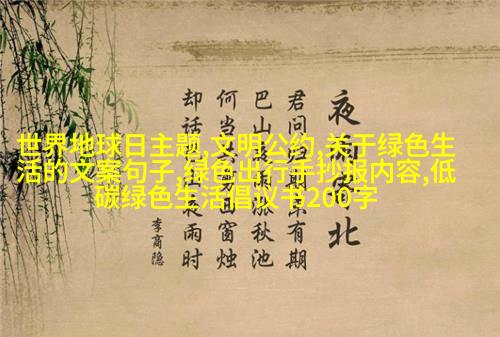 世界地球日主题,文明公约,关于绿色生
活的文案句子,绿色出行手抄报内容,低
碳绿色生活倡议书200字
夜雨寄北
君问归期未有期
巴山夜雨涨秋池
何当共剪西窗烛
却话巴山夜雨时
李商隐